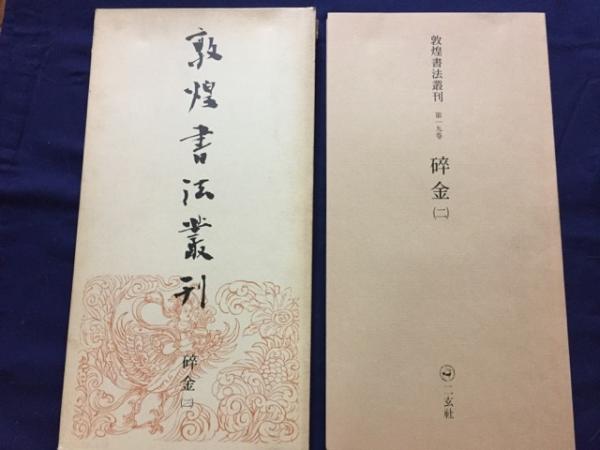 敦煌書法叢刊
碎金㈡
敦煌書法叢刊 第一九巻 碎金㈡
二玄社